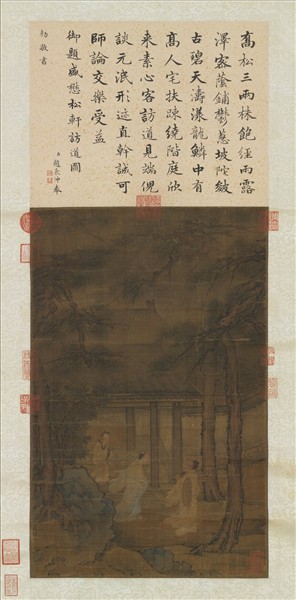 高松三兩株飽經雨露
澤密蔭鋪鬱蔥坡陀皴
古碧天濤漾龍鱗中有
高人宅扶疎繞階庭欣
來素心客訪道見端倪
談元泯形迹直幹誠可
師論交樂受益
御題盛懋松軒訪道圖
臣趙秉冲奉
勑敬書